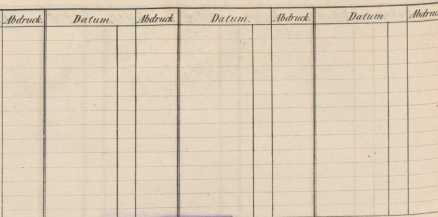 Abdruck. Datum. Abdruck. Datum. Abdruck. Datum. Abdruc